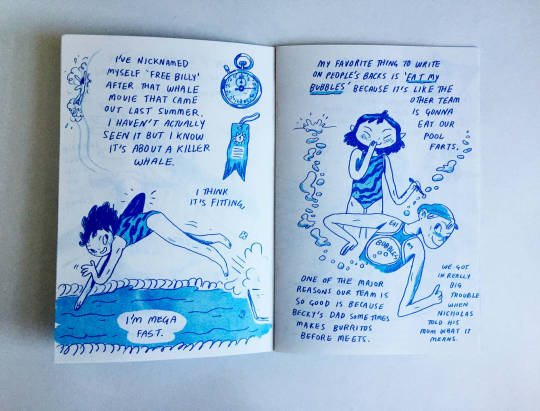 I'VE NICKNAMED
MYSELF 'FREE BILLY'
AFTER THAT WHALE
MOVIE THAT CAME
OUT LAST SUMMER.
I HAVEN'T ACTUALLY
SEEN IT BUT I KNOW
IT'S ABOUT A KILLER
WHALE.
I THINK
IT'S FITTING.
I'M MEGA
FAST.
MY FAVORITE THING TO WRITE
ON PEOPLE'S BACKS IS 'EAT MY
BUBBLES' BECAUSE IT'S LIKE THE
OTHER TEAM
IS GONNA
EAT OUR
POOL
FARTS.
EAT
MY
BUBBLES
ONE OF THE MAJOR
REASONS OUR TEAM IS
SO GOOD IS BECAUSE
BECKY'S DAD SOMETIMES
MAKES BURRITOS
BEFORE MEETS.
WE GOT
IN REALLY
BIG
TROUBLE
WHEN
NICHOLAS
TOLD HIS
MOM WHAT IT
MEANS.